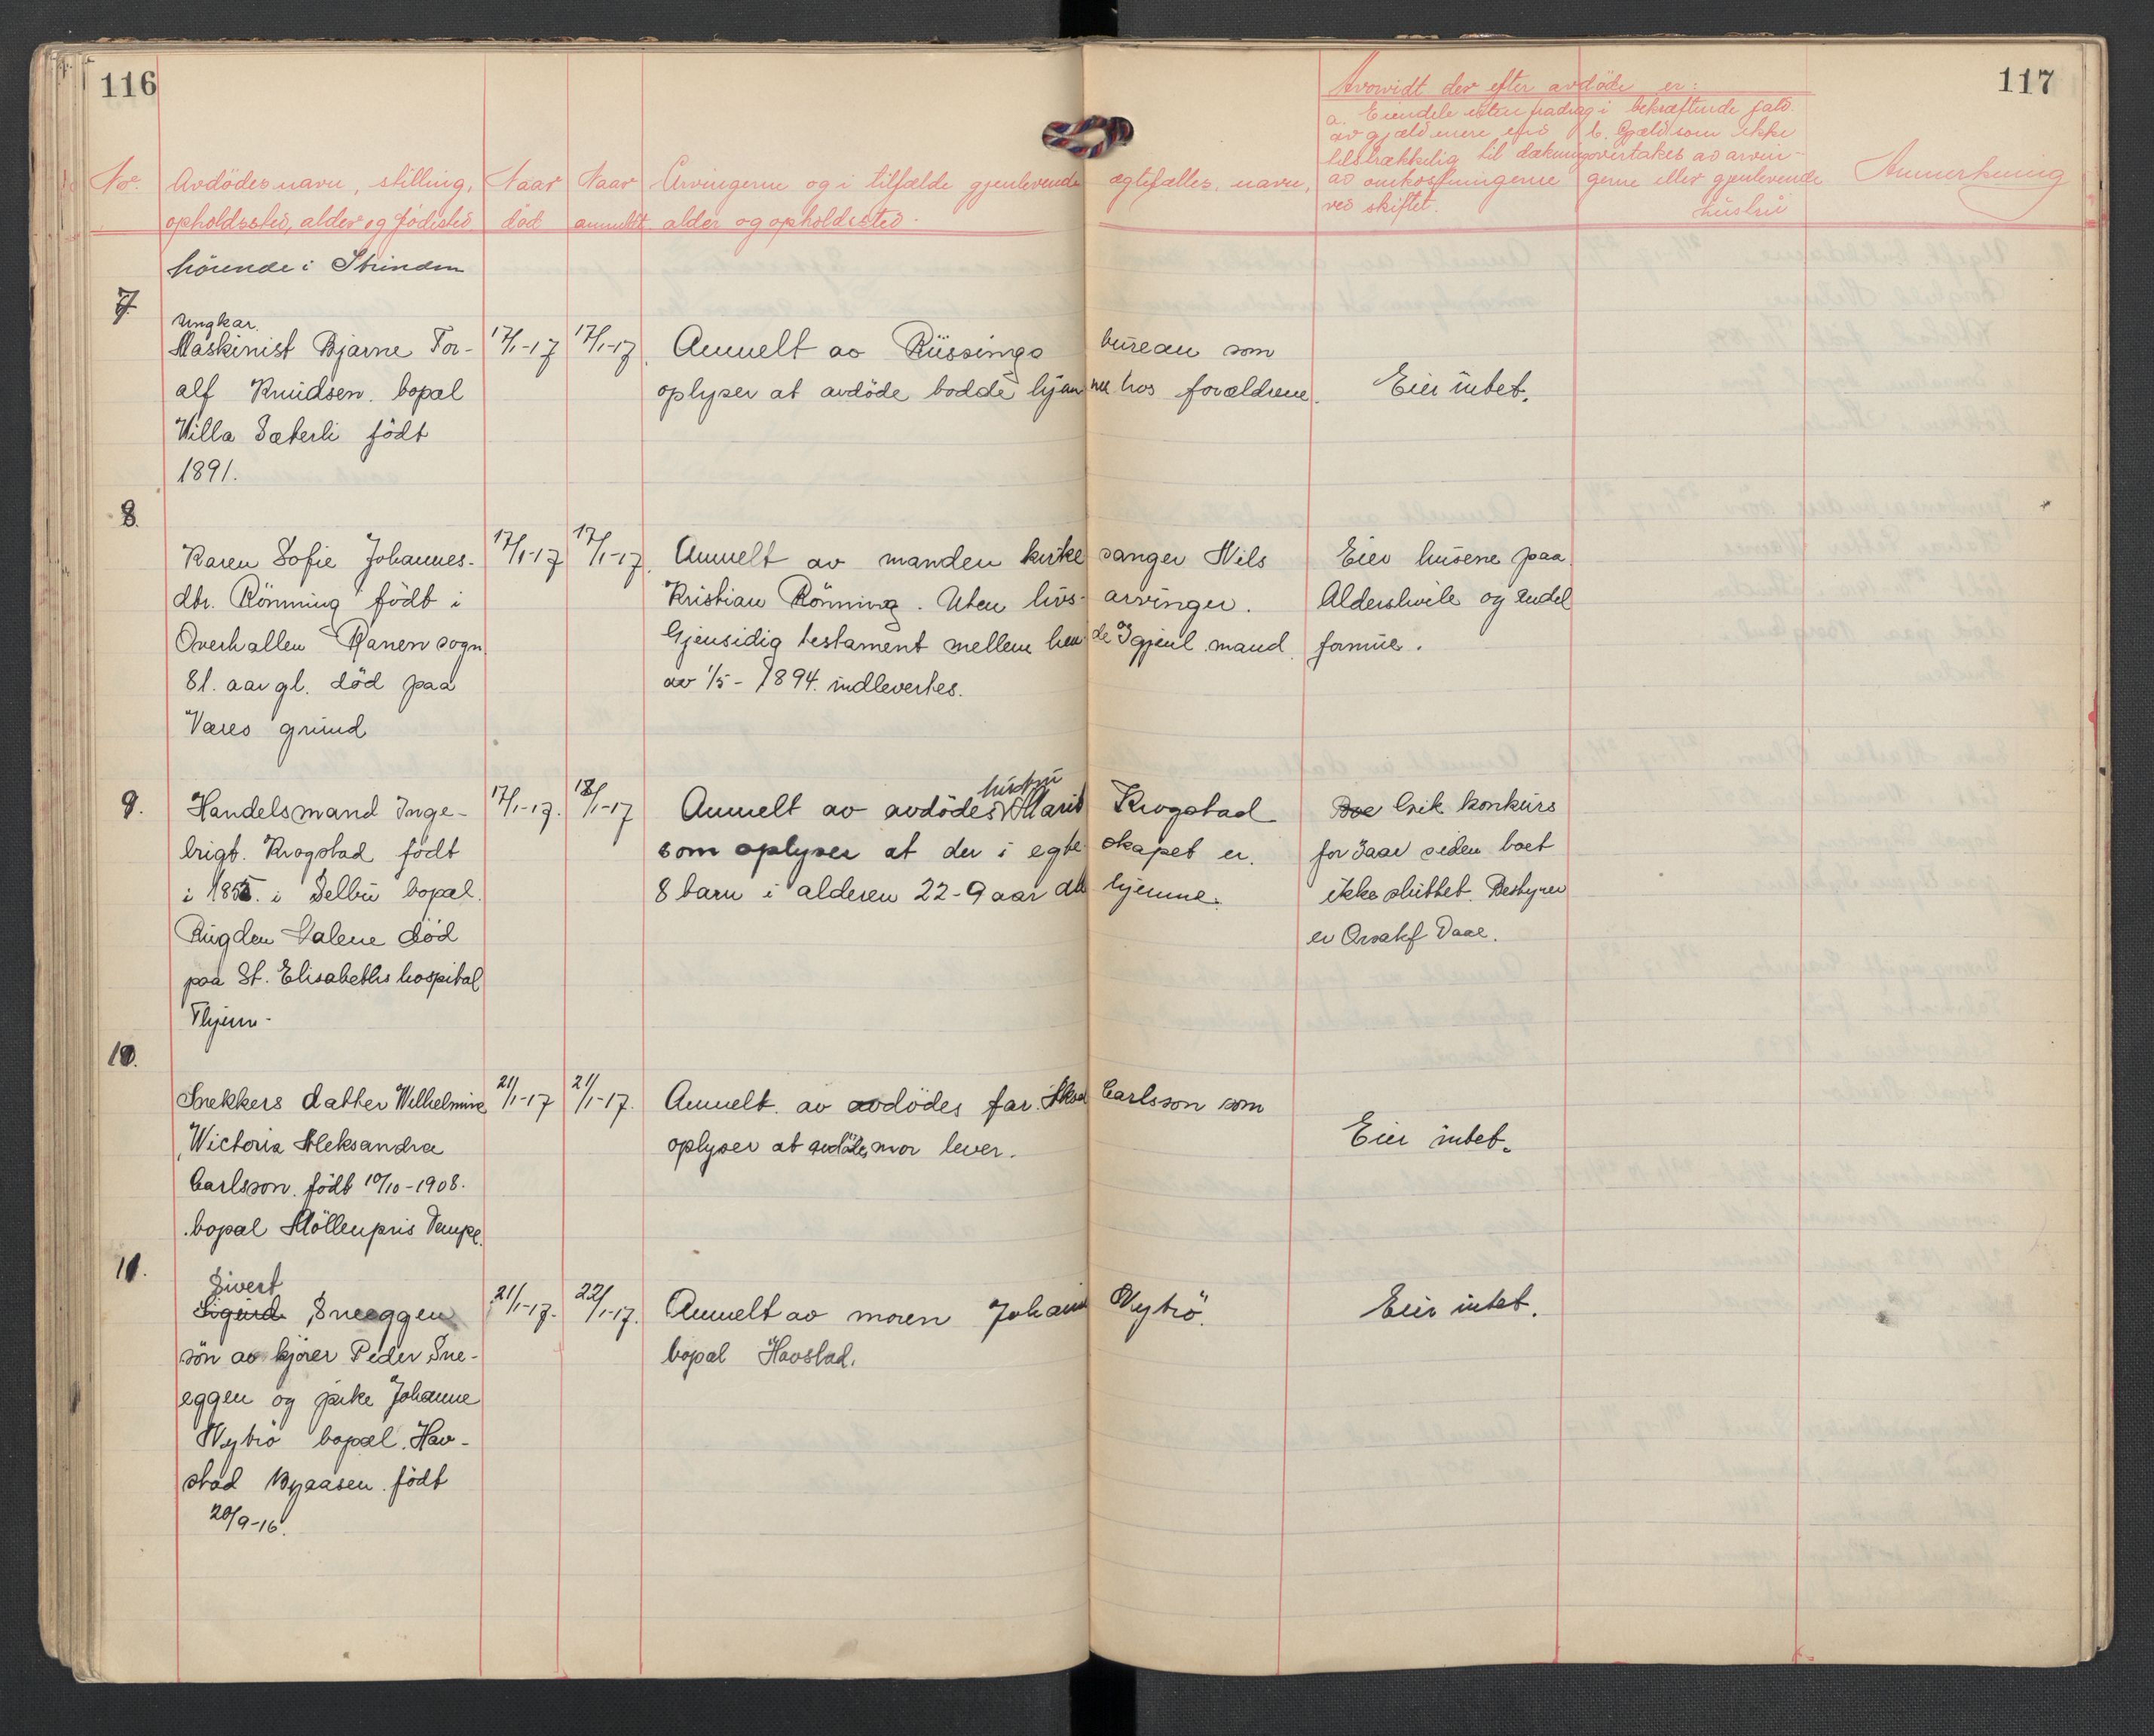 116
117
No. Avdödes navn, stilling, opholdssted, alder og födested
Naar död
Naar anmeldt
Arvingerne og i tilfælde gjenlevende ægtefælles, navn, alder og opholdssted.
Hvorvidt der efter avdöde er:
a. Eiendele efter fradrag av gjæld mere end tilstrækkelig til dækning av omkostningerne ved skiftet.
i bekræftende fald. b. Gjæld som ikke overtakes av arvingerne eller gjenlevende hustru
Anmerkning
hörende i Strinden
7.
Ungkar.
Maskinist Bjarne Tor-
alf Knudsen. bopæl
Villa Sæterli födt
1891.
17/1-17
17/1-17
Anmelt av Rüssings bureau som
oplyser at avdöde bodde hjemme hos forældrene.
Eier intet.
8.
Karen Sofie Johannes-
dtr. Rönning födt i
Overhallen Ranem sogn
81. aar gl. död paa
Væres grund
17/1-17
17/1-17.
Anmelt av manden kirkesanger Nils
Kristian Rönning. Uten livsarvinger.
Gjensidig testament mellem hende og gjenl. mand.
av 1/5-1894. indlevertes.
Eier husene paa
Aldershvile og endel
formue.
9.
Handelsmand Inge-
brigt. Krogstad födt
i 1855. i Selbu bopæl.
Rugden Dalene död
paa St. Elisabeths hospital
Thjem-
17/1-17.
18/1-17
Anmelt av avdödes hustru Marit Krogstad
som oplyser at der i egteskapet er.
8 barn i alderen 22-9 aar alle hjemme.
Boe Gik konkurs
for 3 aar siden boet
ikke sluttet. Bestyrer
er Orsakf Daae.
10.
Snekkers datter Wilhelmine
Wictoria Aleksandra
Carlsson. födt 10/10-1908.
bopæl Möllenpris Tempe.
21/1-17
21/1-17.
Anmelt. av avdödes far. Carlsson som
oplyser at avdödes mor lever.
Eier intet.
11.
Sivert
Sigurd Sneeggen
sön av kjörer Peder Sne-
eggen og pike Johanne
Nytrö bopæl. Hav-
stad Byaasen. födt
20/9-16.
21/1-17.
22/1-17.
Anmelt av moren Johanne Nytrö.
bopæl Havstad.
Eier intet.